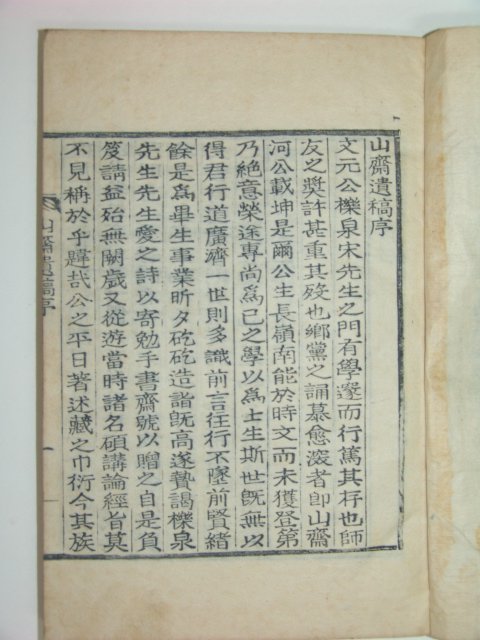 山齋遺稿序
文元公櫟泉宋先生之門有學邃而行篤其存也師
友之奬許甚重其歿也鄕黨之誦慕愈深者卽山齋
河公載坤是爾公生長嶺南能於時文而未獲登第
乃絶意榮途專尙爲已之學以爲士生斯世旣無以
得君行道廣濟一世則多識前言往行不墜前賢緖
餘是爲畢生事業昕夕矻矻造詣旣高遂贄謁櫟泉
先生先生愛之詩以寄勉手書齋號以贈之自是負
笈請益殆無闕歲又從遊當時諸名碩講論經旨莫
不見稱於乎韙哉公之平日著述藏之巾衍今其族
山齋遺稿序
一